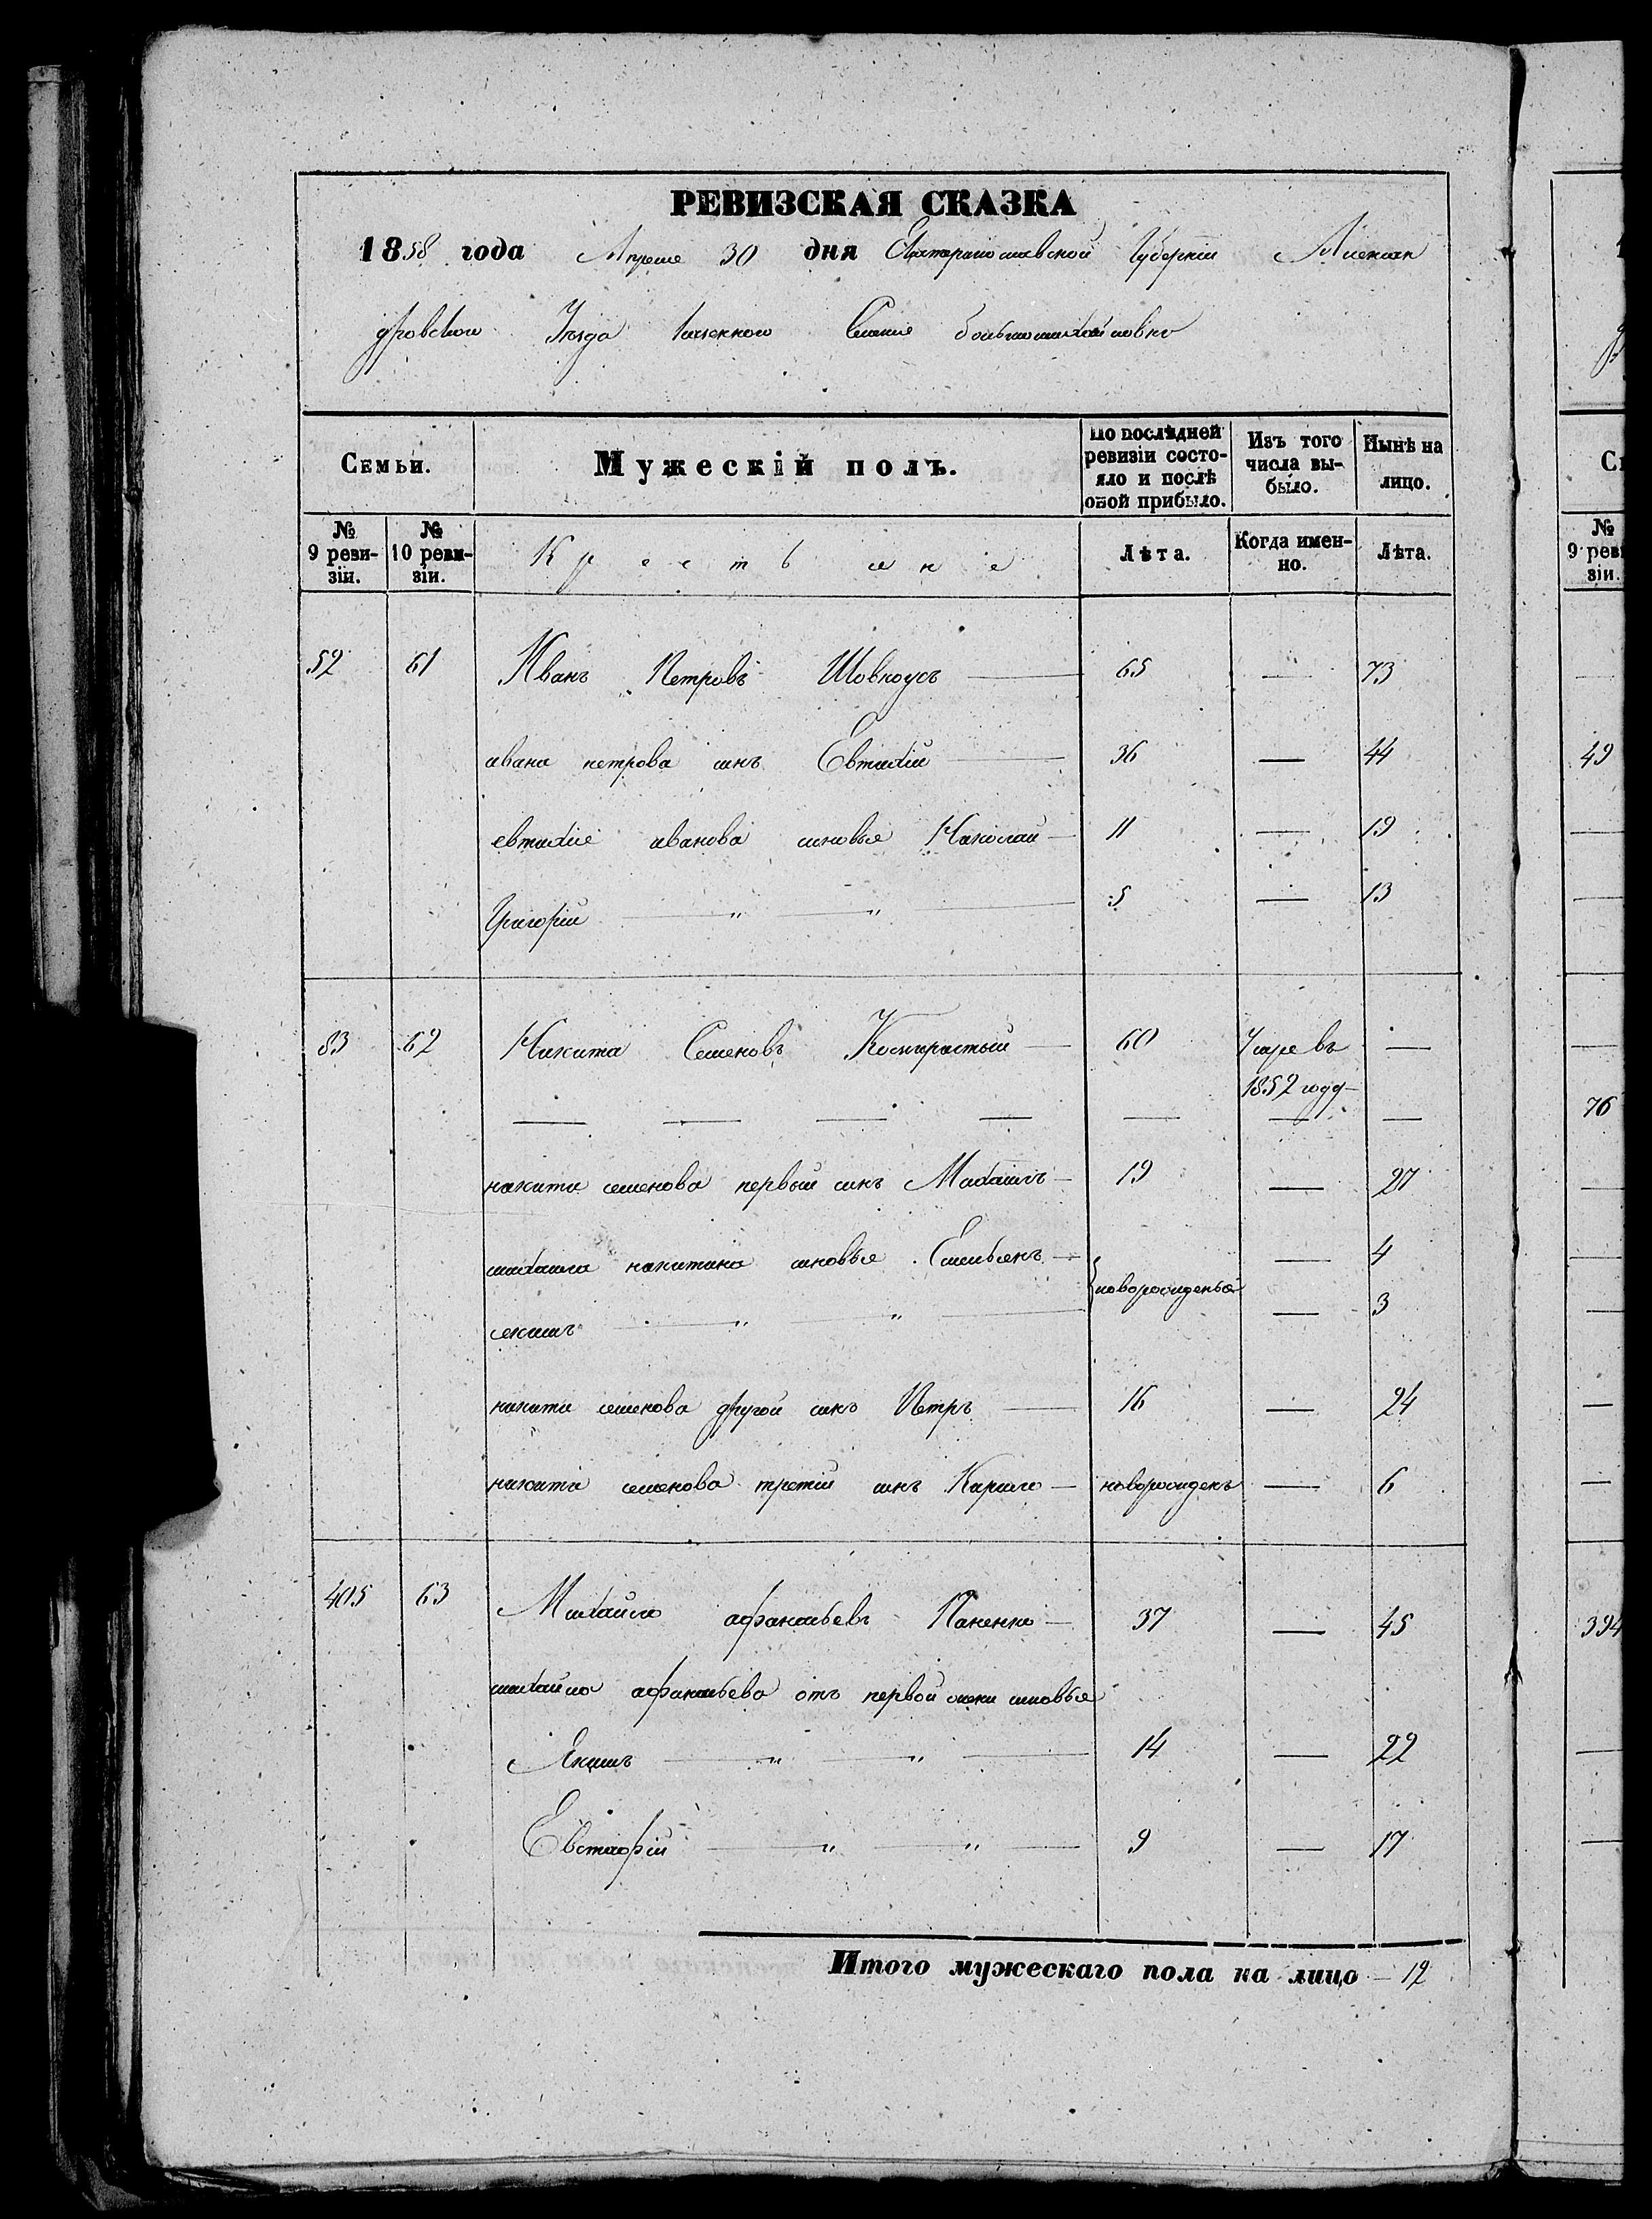 РЕВИЗСКАЯ СКАЗКА
1858 года Апреля 30 дня Екатеринославской Губернии Алексан
дровского Уезда казенного Селение большомихайловки
Семьи. Мужескій полъ. По послѣдней ревизіи состояло и послѣ оной прибыло. Изъ того числа выбыло. Нынѣ на лицо.
№ 9 ревизіи. № 10 ревизіи. Крестьяне Лѣта. Когда именно. Лѣта.
52 61 Иванъ Петровъ Шовкоусъ 65 — 73
ивана петрова синъ Евтихій 36 — 44
евтихіе иванова синовье Николай 11 — 19
Григорій " " 5 — 13
83 62 Никита Семеновъ 60 Умре въ —
1852 году
— — — — — — —
никити семенова первый синъ Михаилъ 19 — 27
михаила никитина синовье Емельенъ — 4
новорожденые
" " — 3
никити семенова другой синъ Петръ 16 — 24
никити семенова третій синъ Кирило новорожденъ — 6
405 63 Михайло афанасьевъ Паненко 37 — 45
михайла афанасьева отъ первой жени синовье
Якимъ " " 14 — 22
Евстафій " " 9 — 17
Итого мужескаго пола на лицо — 12
Се
№ 9 реви
зіи.
49
76
394